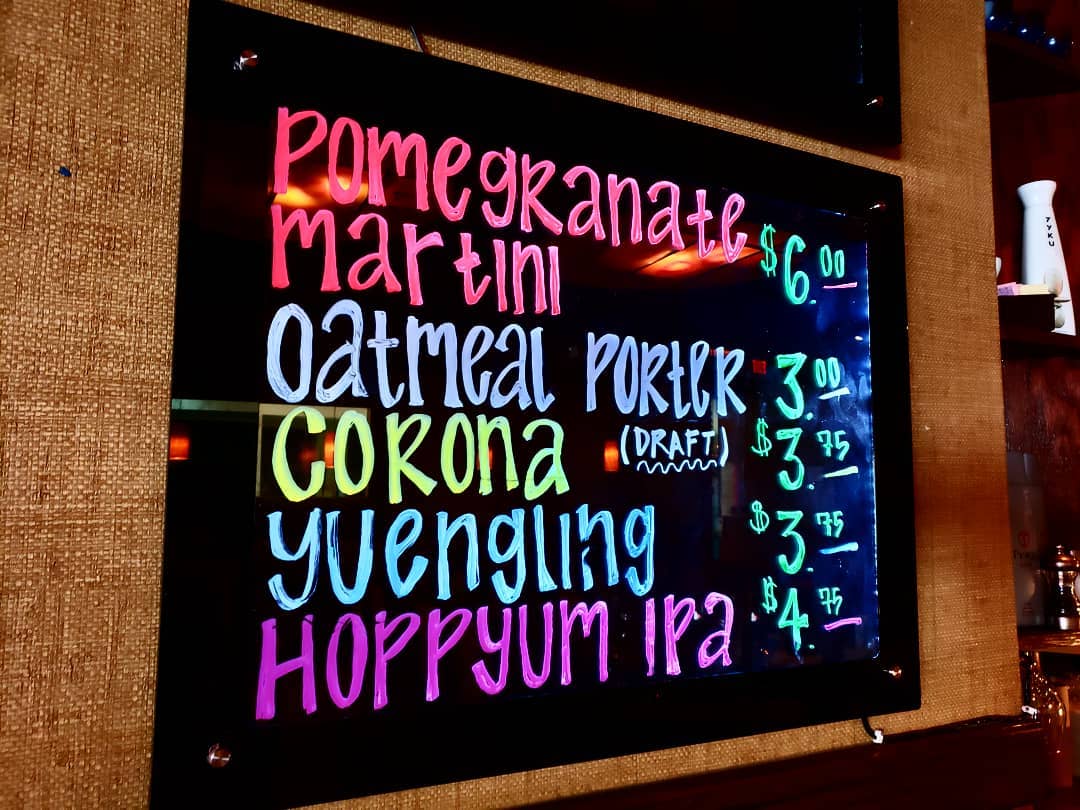 Pomegranate
Martini $6.00
Oatmeal Porter 3.00
(DRAFT)
Corona $3.75
Yuengling $3.75
Hoppyum IPA $4.75
TYKU